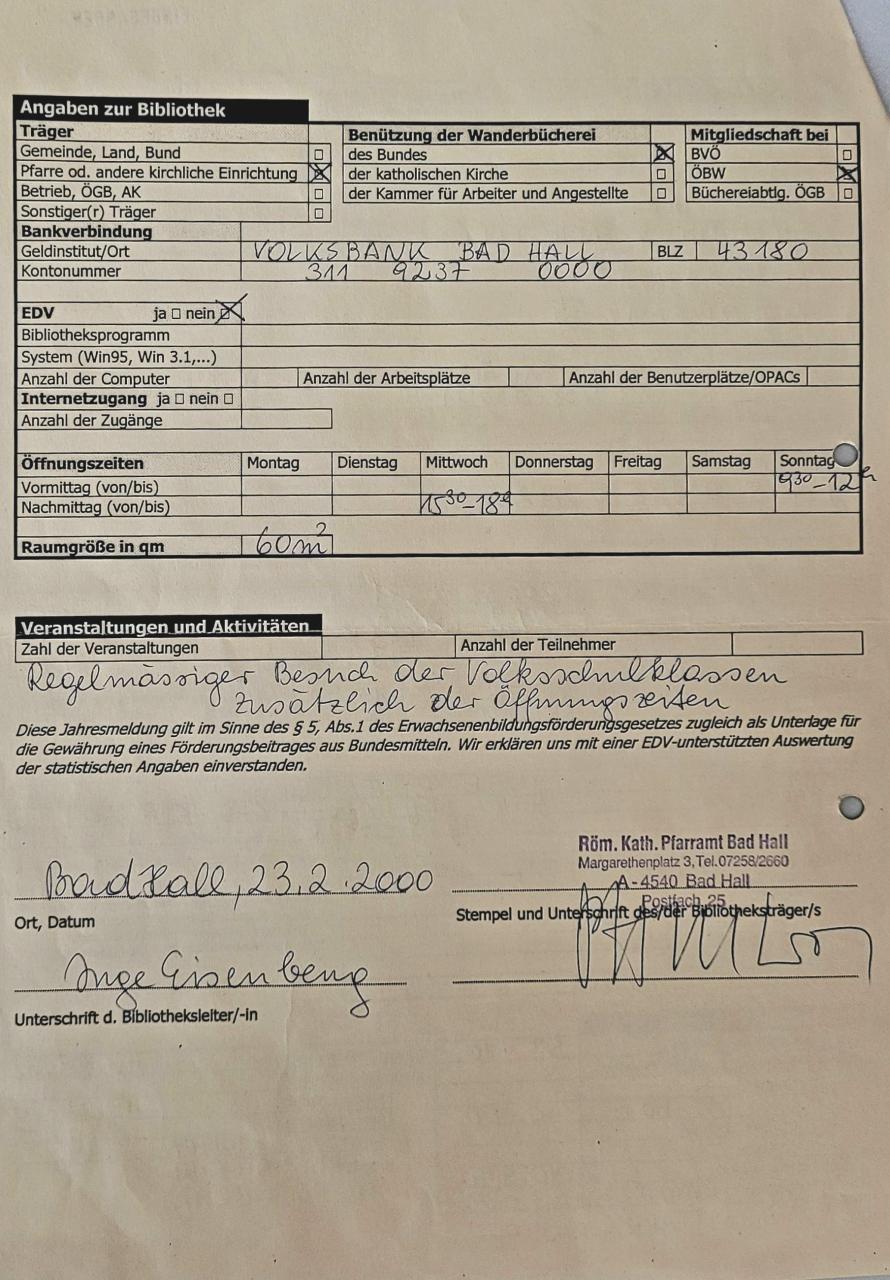 Angaben zur Bibliothek
Träger
Gemeinde, Land, Bund ☐
Pfarre od. andere kirchliche Einrichtung ☒
Betrieb, ÖGB, AK ☐
Sonstiger(r) Träger ☐
Benützung der Wanderbücherei
des Bundes ☒
der katholischen Kirche ☐
der Kammer für Arbeiter und Angestellte ☐
Mitgliedschaft bei
BVÖ ☐
ÖBW ☒
Büchereiabtlg. ÖGB ☐
Bankverbindung
Geldinstitut/Ort VOLKSBANK BAD HALL BLZ 43180
Kontonummer 311 9237 0000
EDV ja ☐ nein ☒
Bibliotheksprogramm
System (Win95, Win 3.1,...)
Anzahl der Computer Anzahl der Arbeitsplätze Anzahl der Benutzerplätze/OPACs
Internetzugang ja ☐ nein ☐
Anzahl der Zugänge
Öffnungszeiten Montag Dienstag Mittwoch Donnerstag Freitag Samstag Sonntag
Vormittag (von/bis) 930-12h
Nachmittag (von/bis) 1530-18h
Raumgröße in qm 60m2
Veranstaltungen und Aktivitäten
Zahl der Veranstaltungen Anzahl der Teilnehmer
Regelmässiger Besuch der Volksschulklassen
zusätzlich der Öffnungszeiten
Diese Jahresmeldung gilt im Sinne des § 5, Abs.1 des Erwachsenenbildungsförderungsgesetzes zugleich als Unterlage für
die Gewährung eines Förderungsbeitrages aus Bundesmitteln. Wir erklären uns mit einer EDV-unterstützten Auswertung
der statistischen Angaben einverstanden.
Röm. Kath. Pfarramt Bad Hall
Margarethenplatz 3, Tel. 07258/2660
A-4540 Bad Hall
Postfach 25
Bad Hall, 23.2.2000
Ort, Datum
Stempel und Unterschrift des/der Bibliotheksträger/s
Inge Eisenberg
Unterschrift d. Bibliotheksleiter/-in